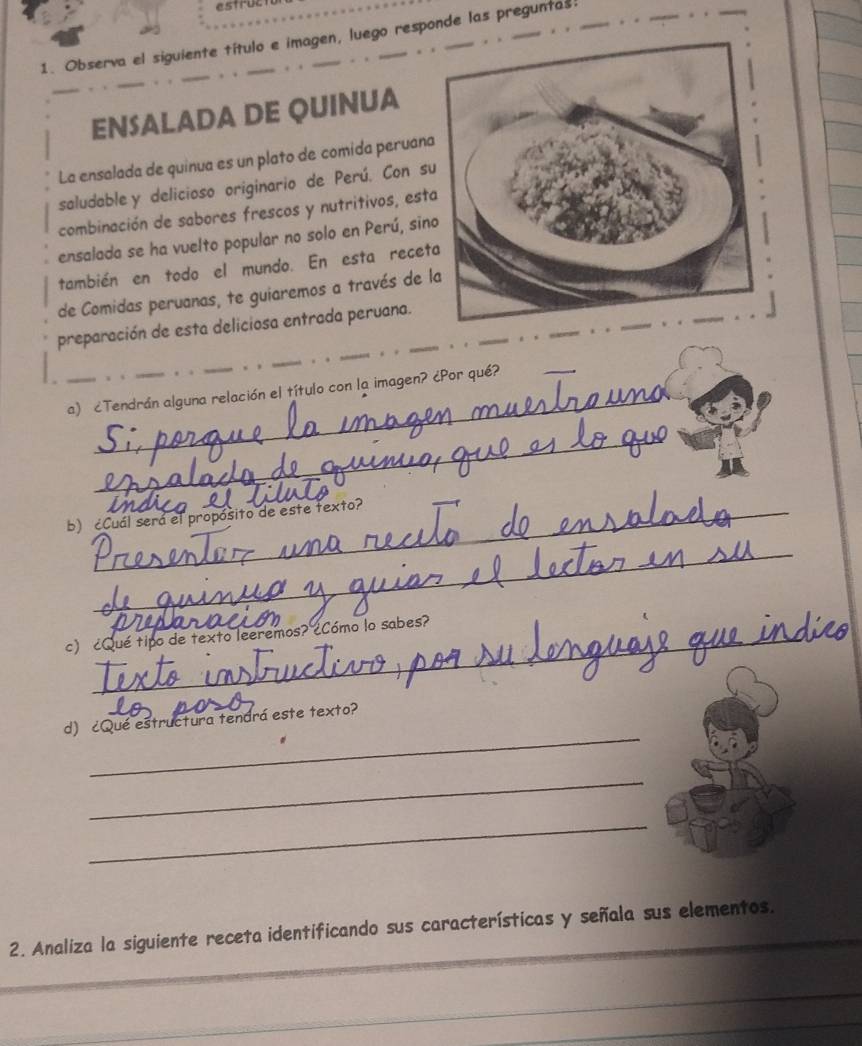 1. Observa el siguiente título e imagen, luego responde las preguntas:
ENSALADA DE QUINUA
La ensalada de quinua es un plato de comida peruana
saludable y delicioso originario de Perú. Con su
combinación de sabores frescos y nutritivos, esta
ensalada se ha vuelto popular no solo en Perú, sino
también en todo el mundo. En esta receta
de Comidas peruanas, te guiaremos a través de la
preparación de esta deliciosa entrada peruana.
a) ¿Tendrán alguna relación el título con la imagen? ¿Por qué?
Si, porque la imagen muestra una
ensalada de quinua, que es lo que
indica el titulo
b) ¿Cuál será el propósito de este texto?
Presentar una receta de ensalada
de quinua y guiar el lector en su
preparación
c) ¿Qué tipo de texto leeremos? ¿Cómo lo sabes?
Texto instructivo, por su lenguaje que indica
los pasos
d) ¿Qué estructura tendrá este texto?
2. Analiza la siguiente receta identificando sus características y señala sus elementos.